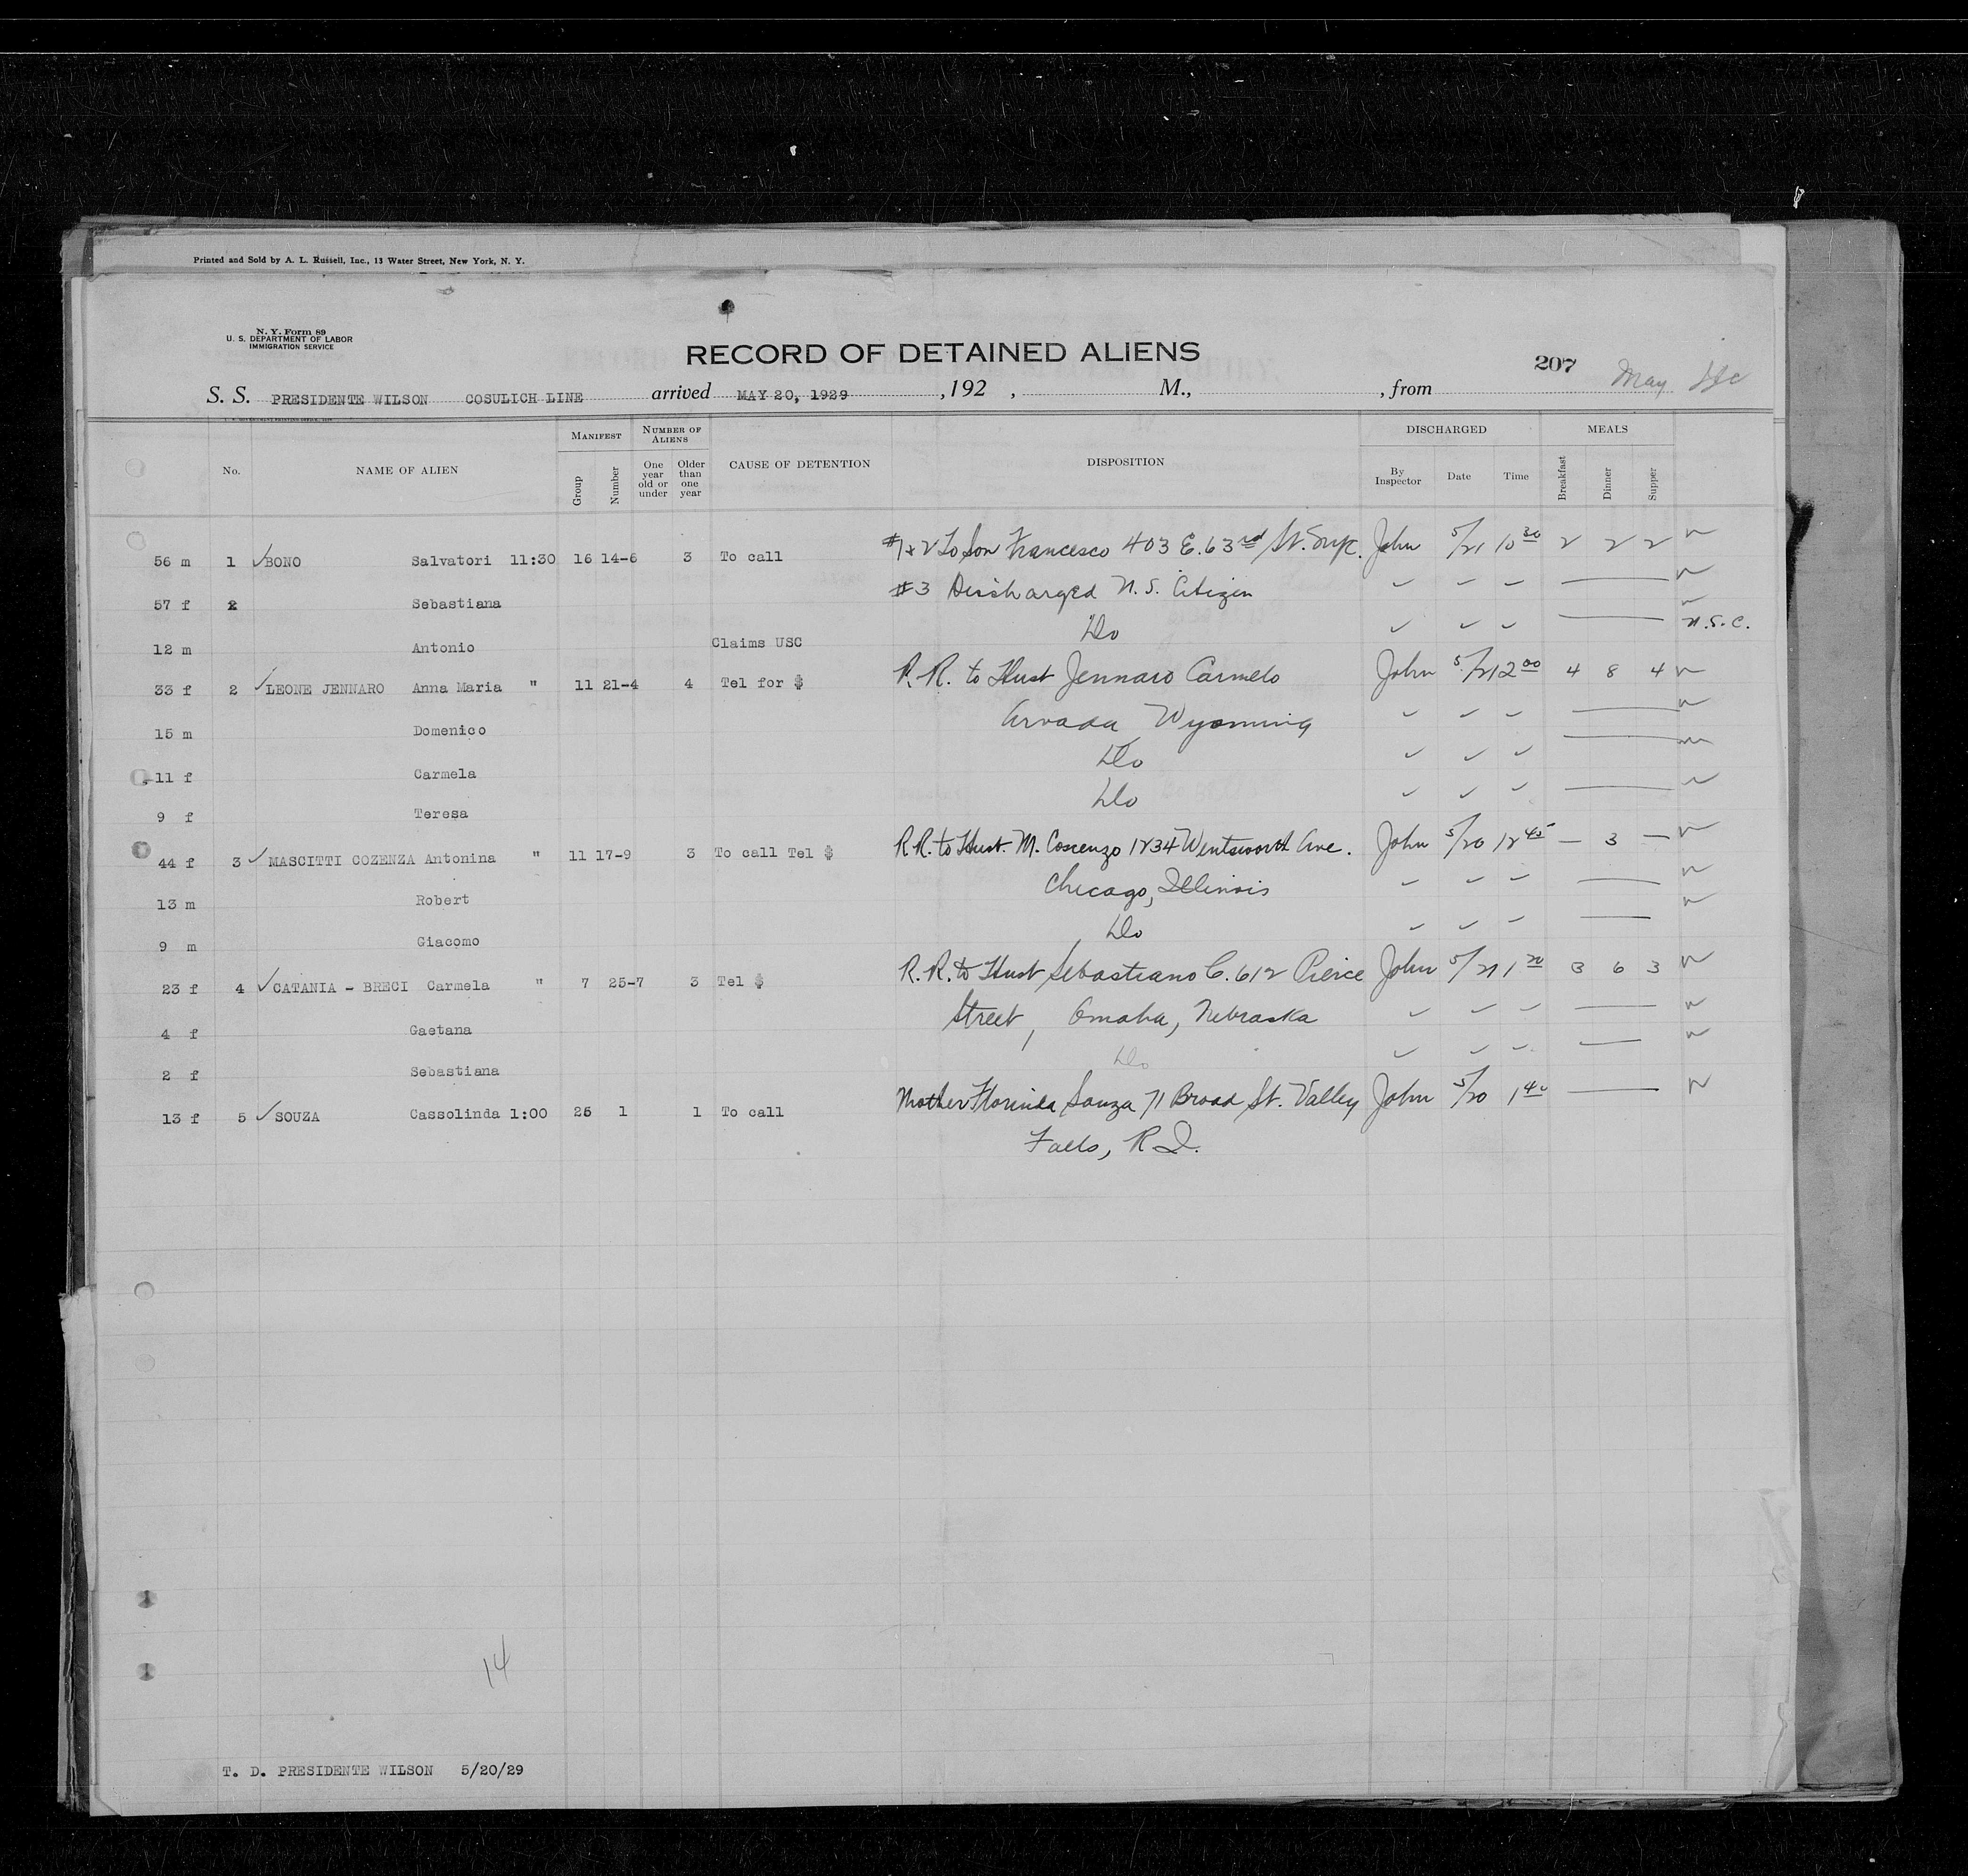 Printed and Sold by A. L. Russell, Inc., 13 Water Street, New York, N. Y.
N. Y. Form 89
U. S. DEPARTMENT OF LABOR
IMMIGRATION SERVICE
RECORD OF DETAINED ALIENS
207 May
S. S. PRESIDENTE WILSON COSULICH LINE arrived MAY 20, 1929 , 192 , M., , from
No. NAME OF ALIEN MANIFEST Group Number NUMBER OF ALIENS One year old or under Older than one year CAUSE OF DETENTION DISPOSITION DISCHARGED By Inspector Date Time MEALS Breakfast Dinner Supper
56 m 1 ✓ BONO Salvatori 11:30 16 14-6 3 To call #1 & 2 To Son Francesco 403 E. 63rd St. NYC. John 5/21 10 30 2 2 2
57 f 2 Sebastiana #3 Discharged U.S. Citizen
12 m Antonio Claims USC Do U.S.C.
33 f 2 ✓ LEONE JENNARO Anna Maria " 11 21-4 4 Tel for $ R.R. to Hust Jennaro Carmelo John 5/21 2 00 4 8 4
15 m Domenico Arvada Wyoming
11 f Carmela Do
9 f Teresa Do
44 f 3 ✓ MASCITTI COZENZA Antonina " 11 17-9 3 To call Tel $ R.R. to Hust. M. Coscenzo 1234 Wentsworth Ave. John 5/20 12 45 — 3 —
13 m Robert Chicago, Illinois
9 m Giacomo Do
23 f 4 ✓ CATANIA - BRECI Carmela " 7 25-7 3 Tel $ R.R. to Hust Sebastiano C. 612 Pierce John 5/21 1 20 3 6 3
4 f Gaetana Street, Omaha, Nebraska
2 f Sebastiana Do
13 f 5 ✓ SOUZA Cassolinda 1:00 25 1 1 To call Mother Florinda Souza 71 Broad St. Valley John 5/20 1 40
Falls, R.I.
14
T. D. PRESIDENTE WILSON 5/20/29